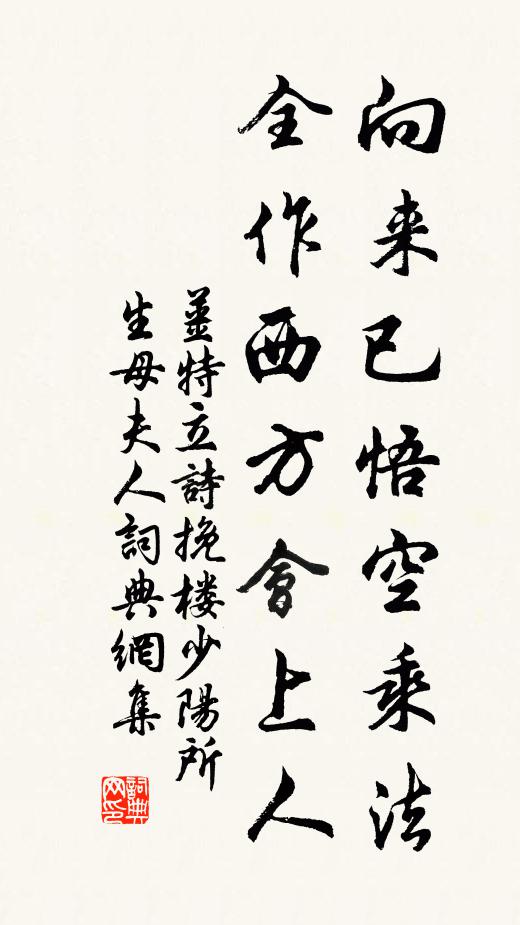 向来已悟空乘法
全作西方會上人
薑特立詩挽楼少陽所
生母夫人詞典網集
詞典
网印